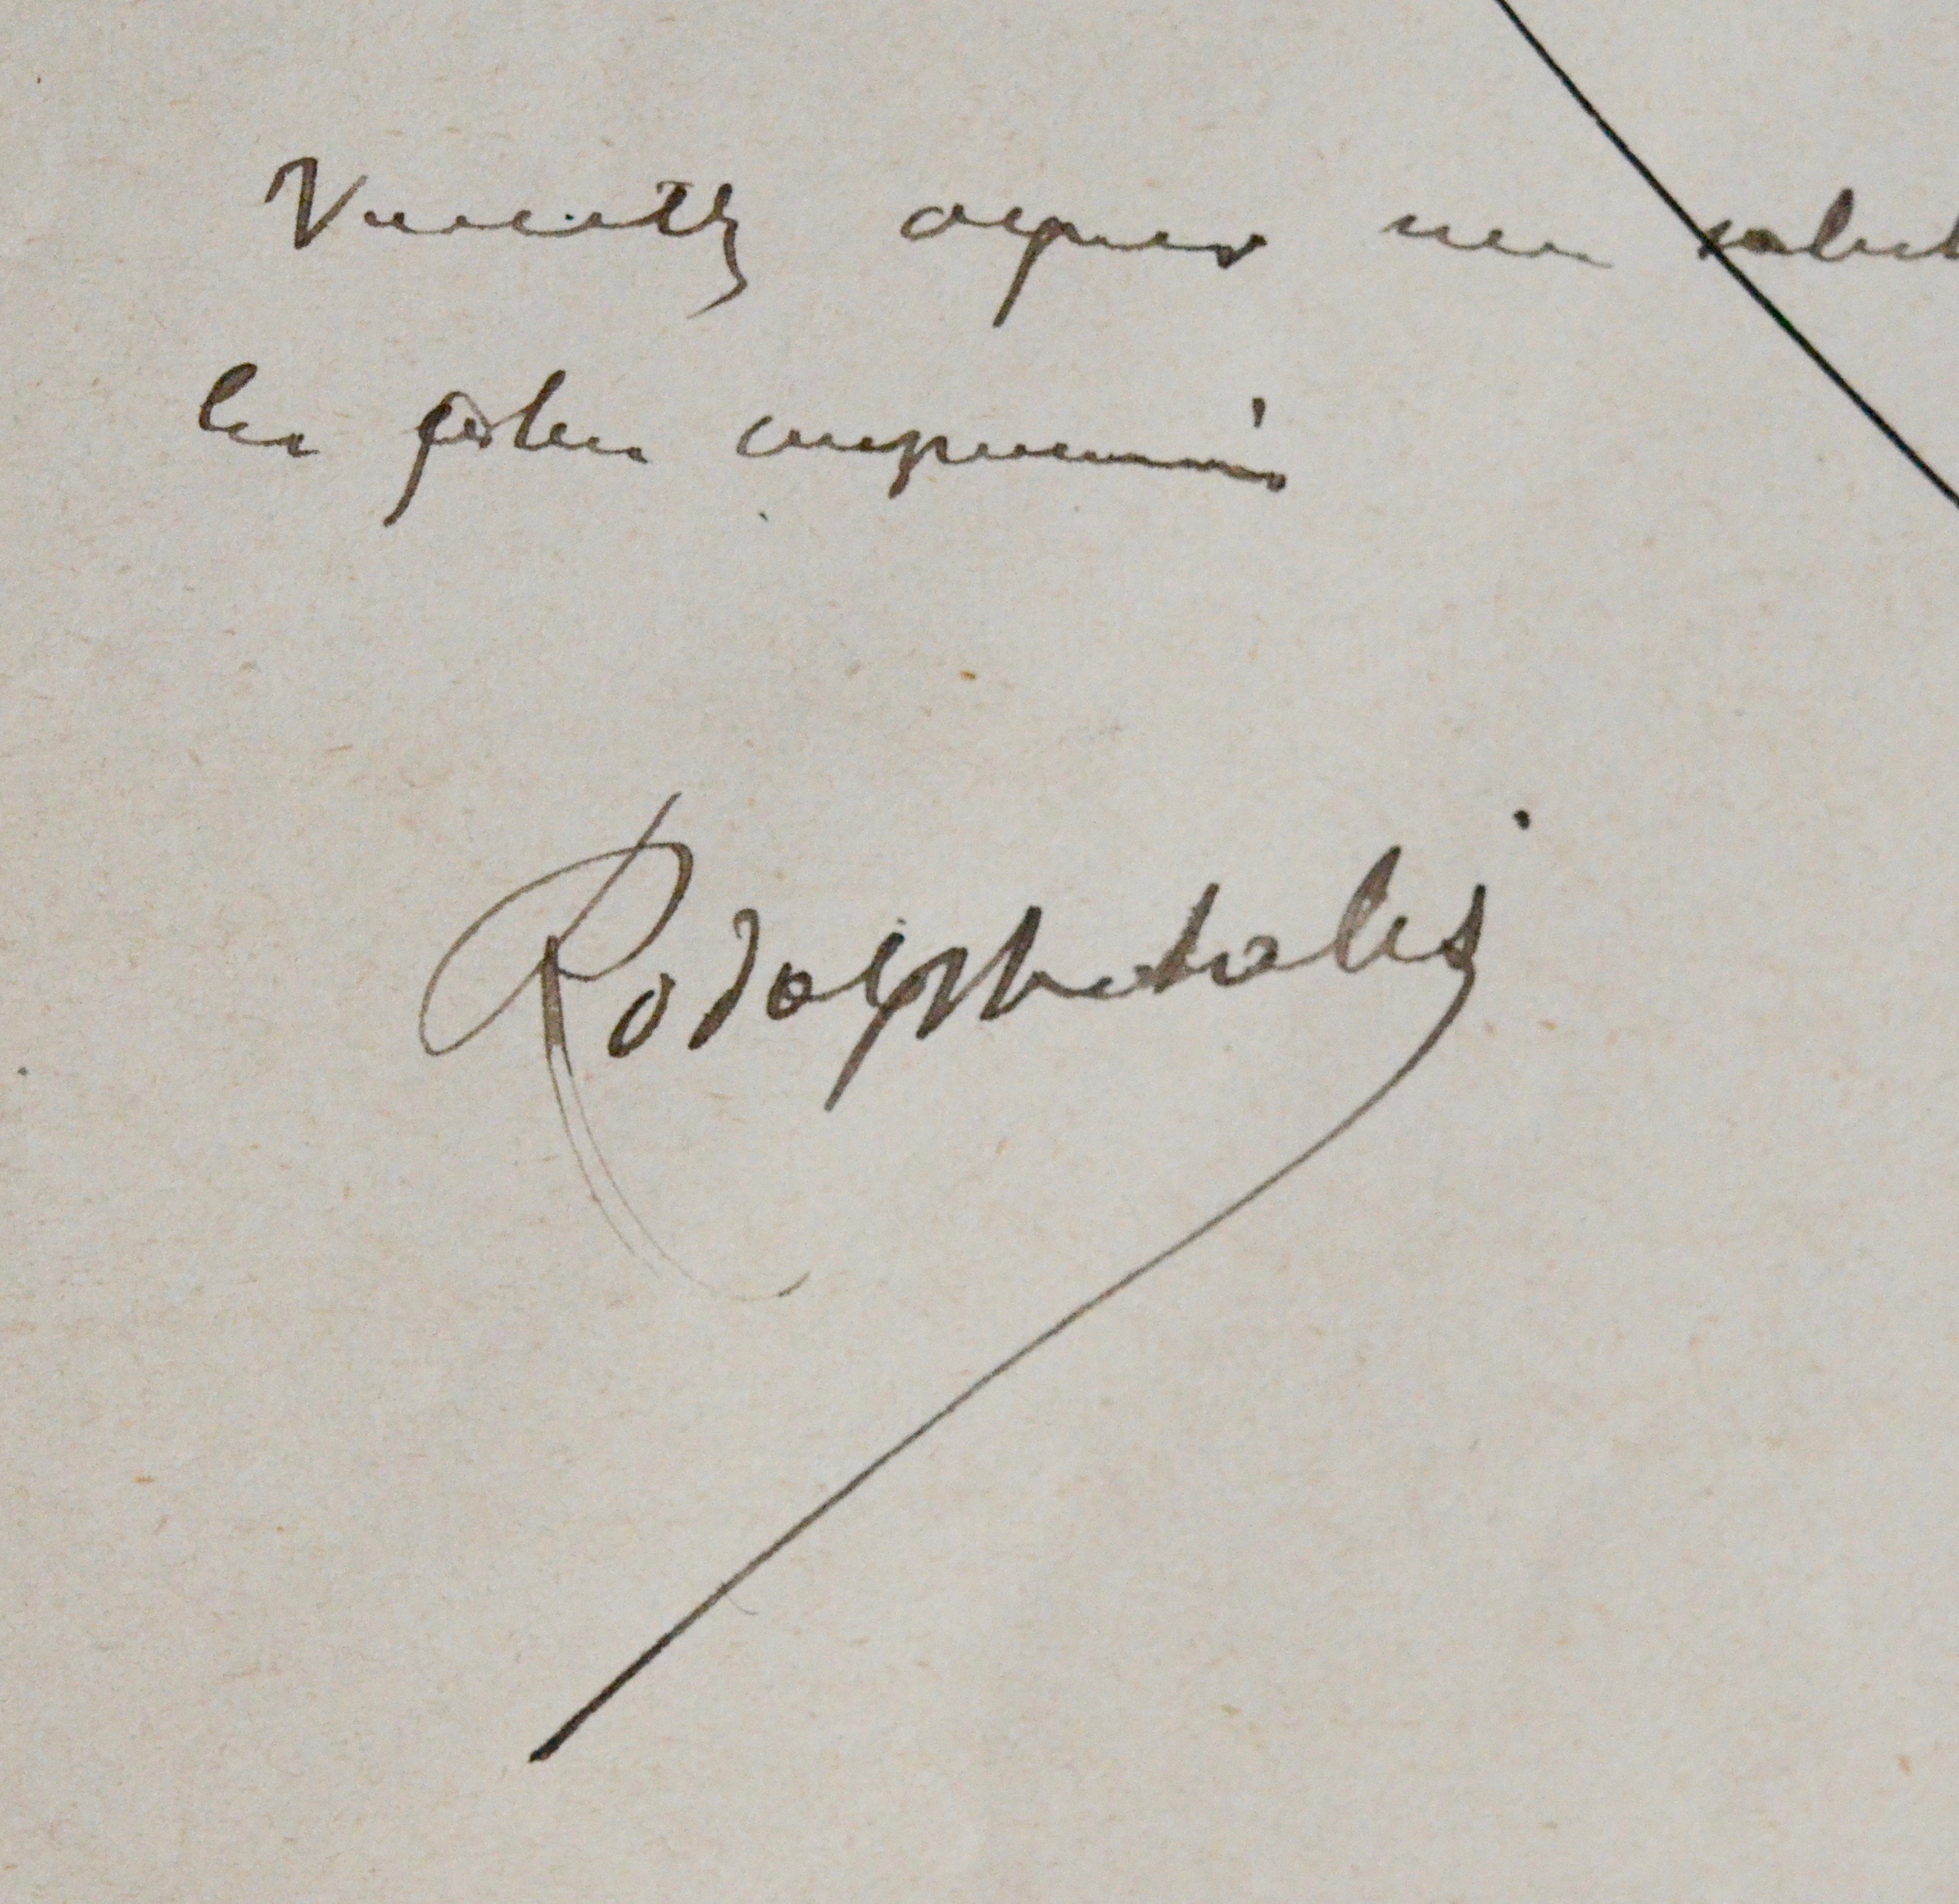 Veuillez agréer mes salut
les plus empressés
Rodolphe Salis